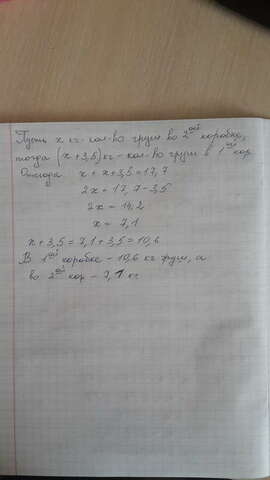 Пусть x кг-кол-во груш во 2ой коробке,
тогда (x+3,5) кг-кол-во груш в 1ой кор
Отсюда x + x+3,5 = 17,7
2x = 17,7-3,5
2x = 14,2
x = 7,1
x+3,5 = 7,1+3,5 = 10,6
В 1ой коробке - 10,6 кг груш, а
во 2ой кор - 7,1 кг